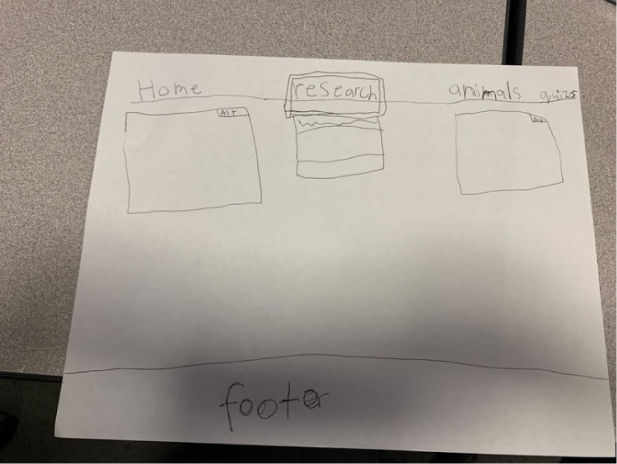 Home research animals quizs
ALT
footer